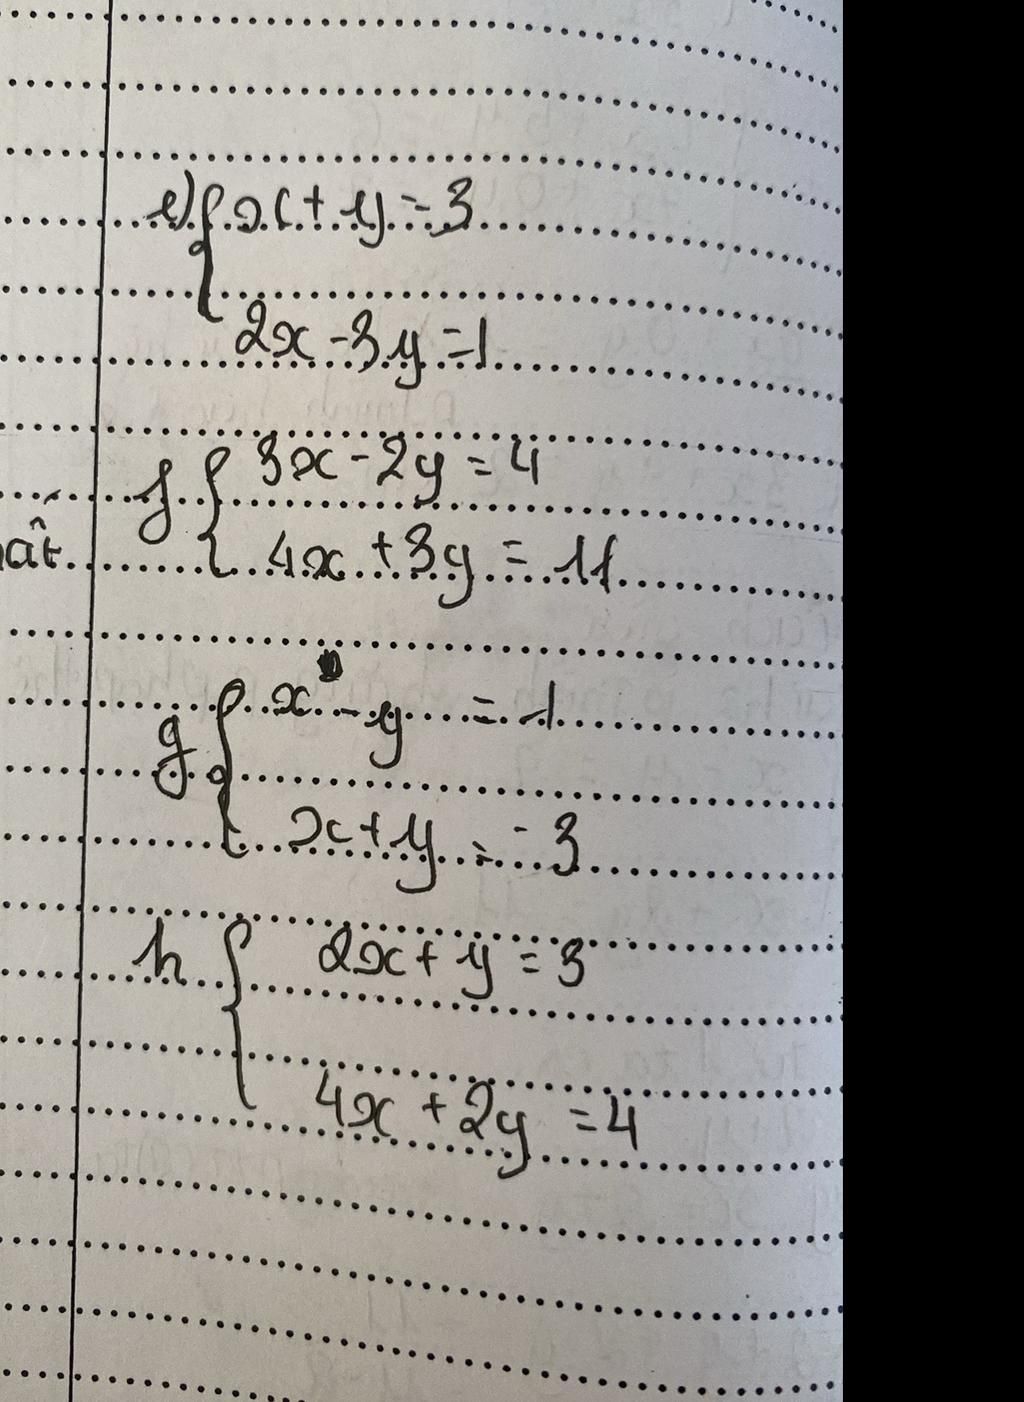 e) { x + y = 3
2x - 3y = 1
f { 3x - 2y = 4
4x + 3y = 11
g { x - y = 1
x + y = -3
h { 2x + y = 3
4x + 2y = 4